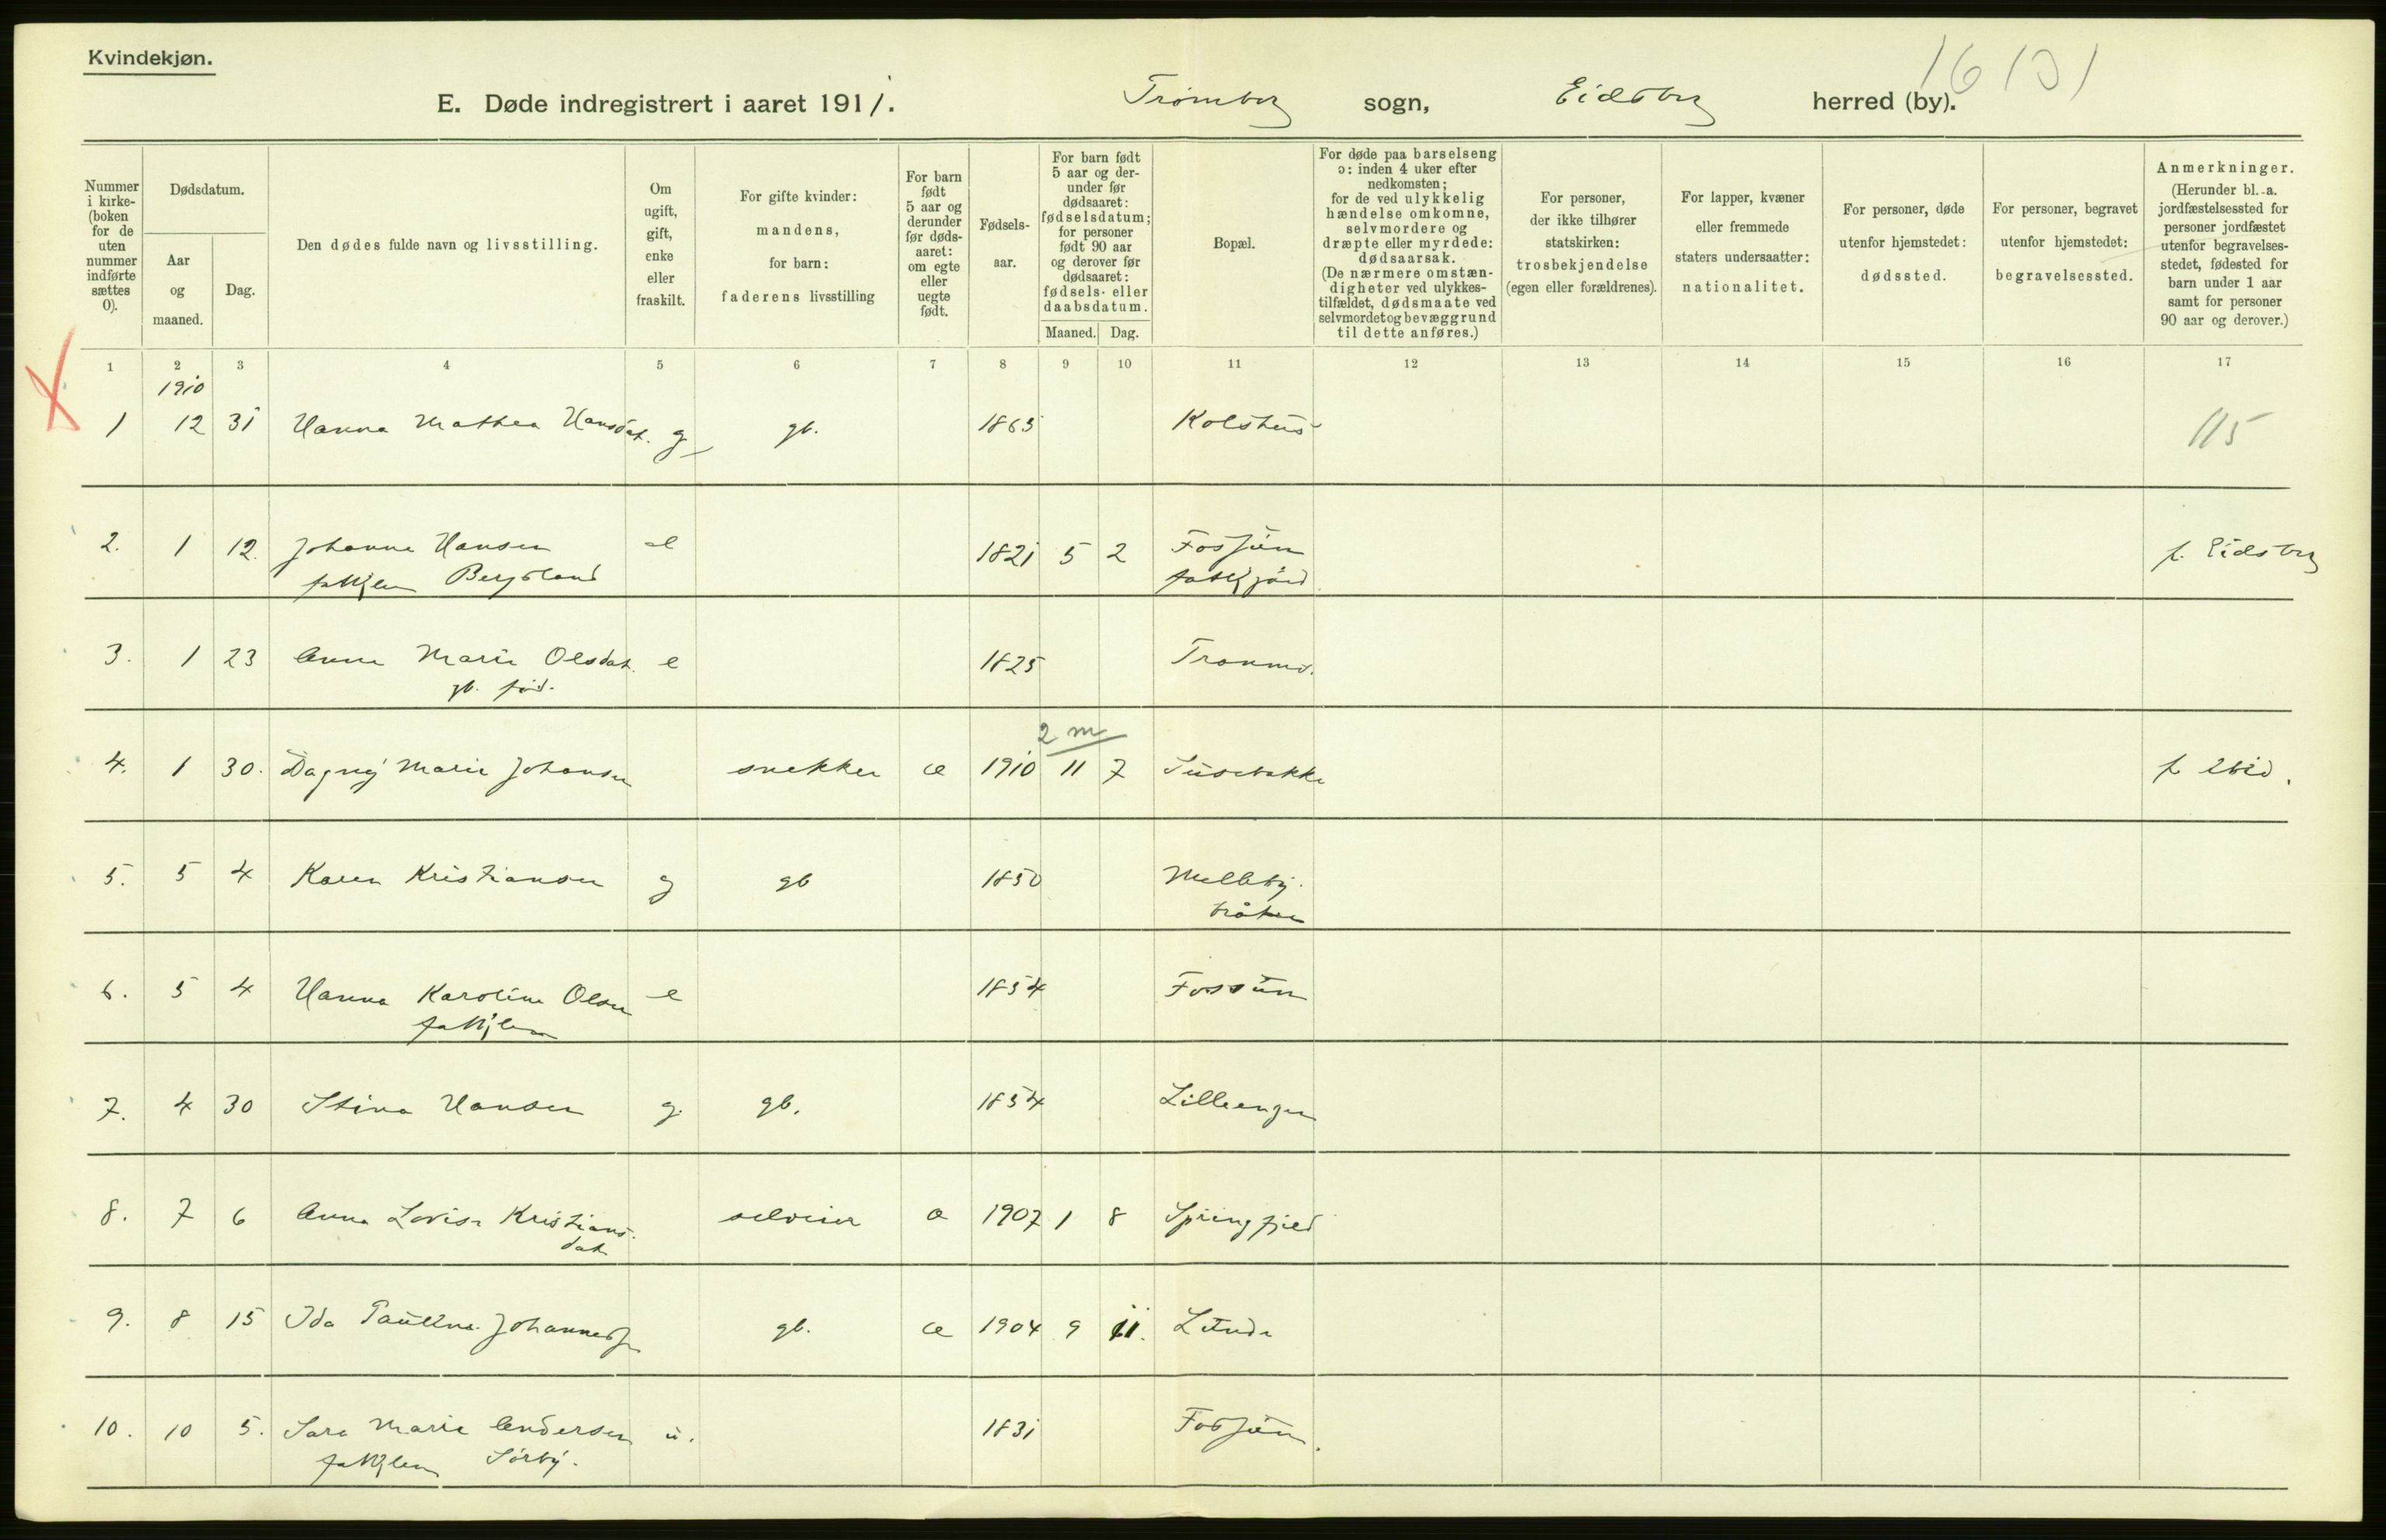 Kvindekjøn.
16 101
E. Døde indregistrert i aaret 1911. Trømborg sogn, Eidsberg herred (by).
Nummer i kirke- (boken for de uten nummer indførte sættes 0).
Dødsdatum.
Aar og maaned.
Dag.
Den dødes fulde navn og livsstilling.
Om ugift, gift, enke eller fraskilt.
For gifte kvinder: mandens, for barn: faderens livsstilling
For barn født 5 aar og derunder før døds- aaret: om egte eller uegte født.
Fødsels- aar.
For barn født 5 aar og der- under før dødsaaret: fødselsdatum; for personer født 90 aar og derover før dødsaaret: fødsels- eller daabsdatum.
Maaned. Dag.
Bopæl.
For døde paa barselseng ɔ: inden 4 uker efter nedkomsten; for de ved ulykkelig hændelse omkomne, selvmordere og dræpte eller myrdede: dødsaarsak. (De nærmere omstæn- digheter ved ulykkes- tilfældet, dødsmaate ved selvmordet og bevæggrund til dette anføres.)
For personer, der ikke tilhører statskirken: trosbekjendelse (egen eller forældrenes).
For lapper, kvæner eller fremmede staters undersaatter: nationalitet.
For personer, døde utenfor hjemstedet: dødssted.
For personer, begravet utenfor hjemstedet: begravelsessted.
Anmerkninger. (Herunder bl. a. jordfæstelsessted for personer jordfæstet utenfor begravelses- stedet, fødested for barn under 1 aar samt for personer 90 aar og derover.)
1 2 3 4 5 6 7 8 9 10 11 12 13 14 15 16 17
1910
1 12 31 Hanna Mathea Hansdat. g gb. 1863 Kolshus 115
2. 1 12. Johanne Hansen e 1821 5 2 Fossum f. Eidsberg
fattiglem Bergsland fattiggård.
3. 1 23 Anne Marie Olsdat. e 1825
gb. föd.
2 m
4. 1 30. Dagny Marie Johansen snekker æ 1910 11 7 Susebakke f. ibid.
5. 5 4 Karen Kristiansen g gb 1850 Melleby.
bråten
6. 5 4 Hanna Karoline Olsen e 1854 Fossum
fattiglem
7. 4 30 Stina Hansen g. gb. 1854 Lilleengen
8. 7 6 Anna Lovise Kristians- selveier æ 1907 1 8 Springfjeld
dat.
9. 8 15 Ida Pauline Johannesen gb. æ 1904 9 11.
10. 10 5. Sara Marie Andersen u. 1831 Fossum.
fattiglem Sörby.